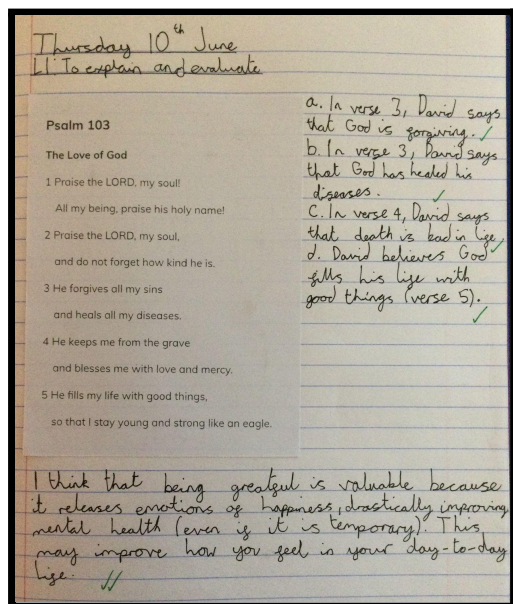 Thursday 10th June
LI: To explain and evaluate
Psalm 103
The Love of God
1 Praise the LORD, my soul!
All my being, praise his holy name!
2 Praise the LORD, my soul,
and do not forget how kind he is.
3 He forgives all my sins
and heals all my diseases.
4 He keeps me from the grave
and blesses me with love and mercy.
5 He fills my life with good things,
so that I stay young and strong like an eagle.
a. In verse 3, David says
that God is forgiving.
b. In verse 3, David says
that God has healed his
diseases.
C. In verse 4, David says
that death is bad in life,
d. David believes God
fills his life with
good things (verse 5).
I think that being greatful is valuable because
it releases emotions of happiness, drastically improving
mental health (even if it is temporary). This
may improve how you feel in your day-to-day
life.